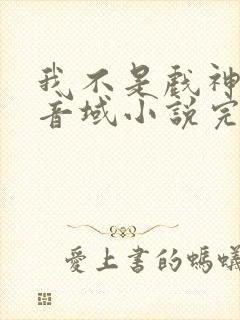 我不是戏神
音域小說完
愛上書的螞蟻